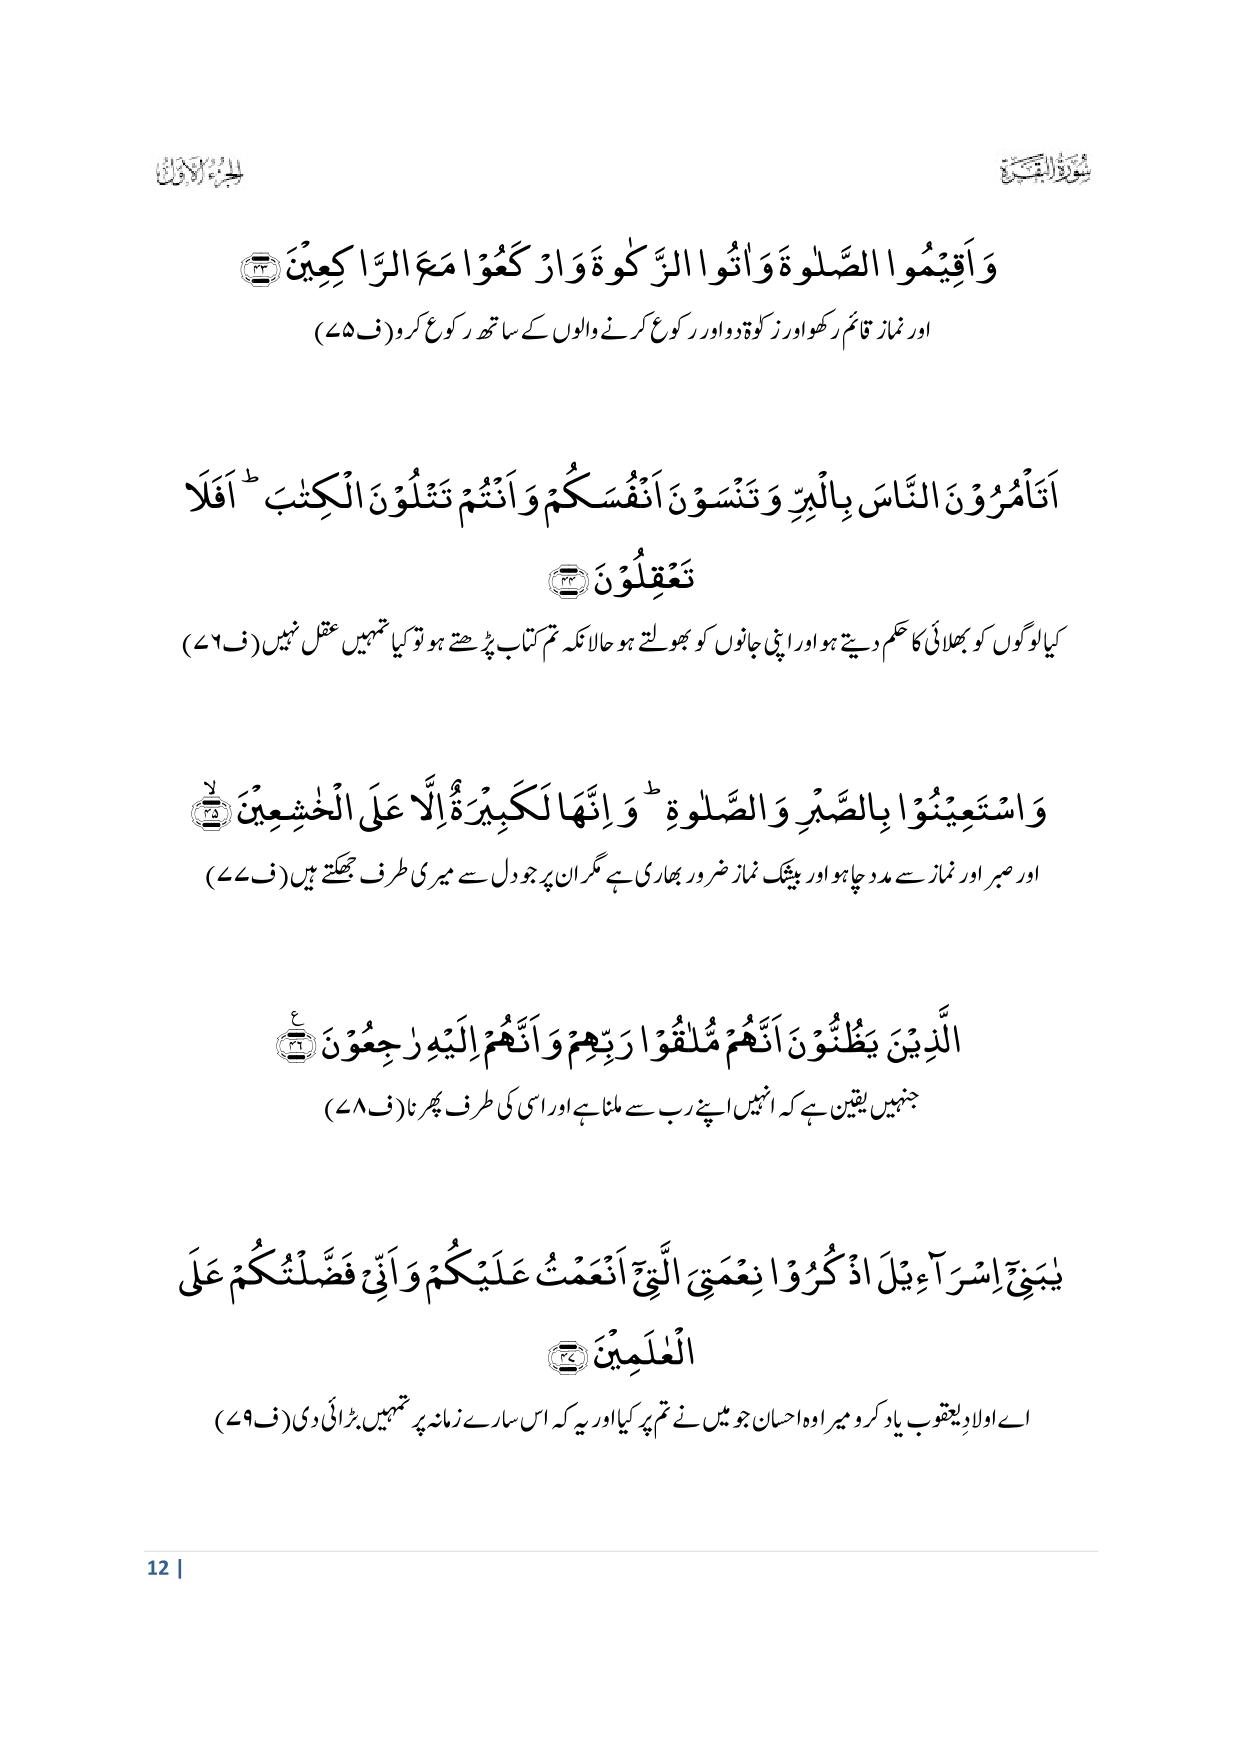 سُوْرَةُ الْبَقَرَةِ
الجزء الاول
وَاَقِيْمُوا الصَّلٰوةَ وَاٰتُوا الزَّكٰوةَ وَارْكَعُوْا مَعَ الرَّاكِعِيْنَ ﴿۴۳﴾
اور نماز قائم رکھو اور زکوٰۃ دو اور رکوع کرنے والوں کے ساتھ رکوع کرو (ف۷۵)
اَتَاْمُرُوْنَ النَّاسَ بِالْبِرِّ وَتَنْسَوْنَ اَنْفُسَكُمْ وَاَنْتُمْ تَتْلُوْنَ الْكِتٰبَ ؕ اَفَلَا
تَعْقِلُوْنَ ﴿۴۴﴾
کیا لوگوں کو بھلائی کا حکم دیتے ہو اور اپنی جانوں کو بھولتے ہو حالانکہ تم کتاب پڑھتے ہو تو کیا تمہیں عقل نہیں (ف۷۶)
وَاسْتَعِيْنُوْا بِالصَّبْرِ وَالصَّلٰوةِ ؕ وَاِنَّهَا لَكَبِيْرَةٌ اِلَّا عَلَى الْخٰشِعِيْنَ ﴿ۙ۴۵﴾
اور صبر اور نماز سے مدد چاہو اور بیشک نماز ضرور بھاری ہے مگر ان پر جو دل سے میری طرف جھکتے ہیں (ف۷۷)
الَّذِيْنَ يَظُنُّوْنَ اَنَّهُمْ مُّلٰقُوْا رَبِّهِمْ وَاَنَّهُمْ اِلَيْهِ رٰجِعُوْنَ ﴿۴۶﴾ ع
جنہیں یقین ہے کہ انہیں اپنے رب سے ملنا ہے اور اسی کی طرف پھرنا (ف۷۸)
يٰبَنِيْۤ اِسْرَآءِيْلَ اذْكُرُوْا نِعْمَتِيَ الَّتِيْۤ اَنْعَمْتُ عَلَيْكُمْ وَاَنِّيْ فَضَّلْتُكُمْ عَلَى
الْعٰلَمِيْنَ ﴿۴۷﴾
اے اولادِ یعقوب یاد کرو میرا وہ احسان جو میں نے تم پر کیا اور یہ کہ اس سارے زمانہ پر تمہیں بڑائی دی (ف۷۹)
12 |